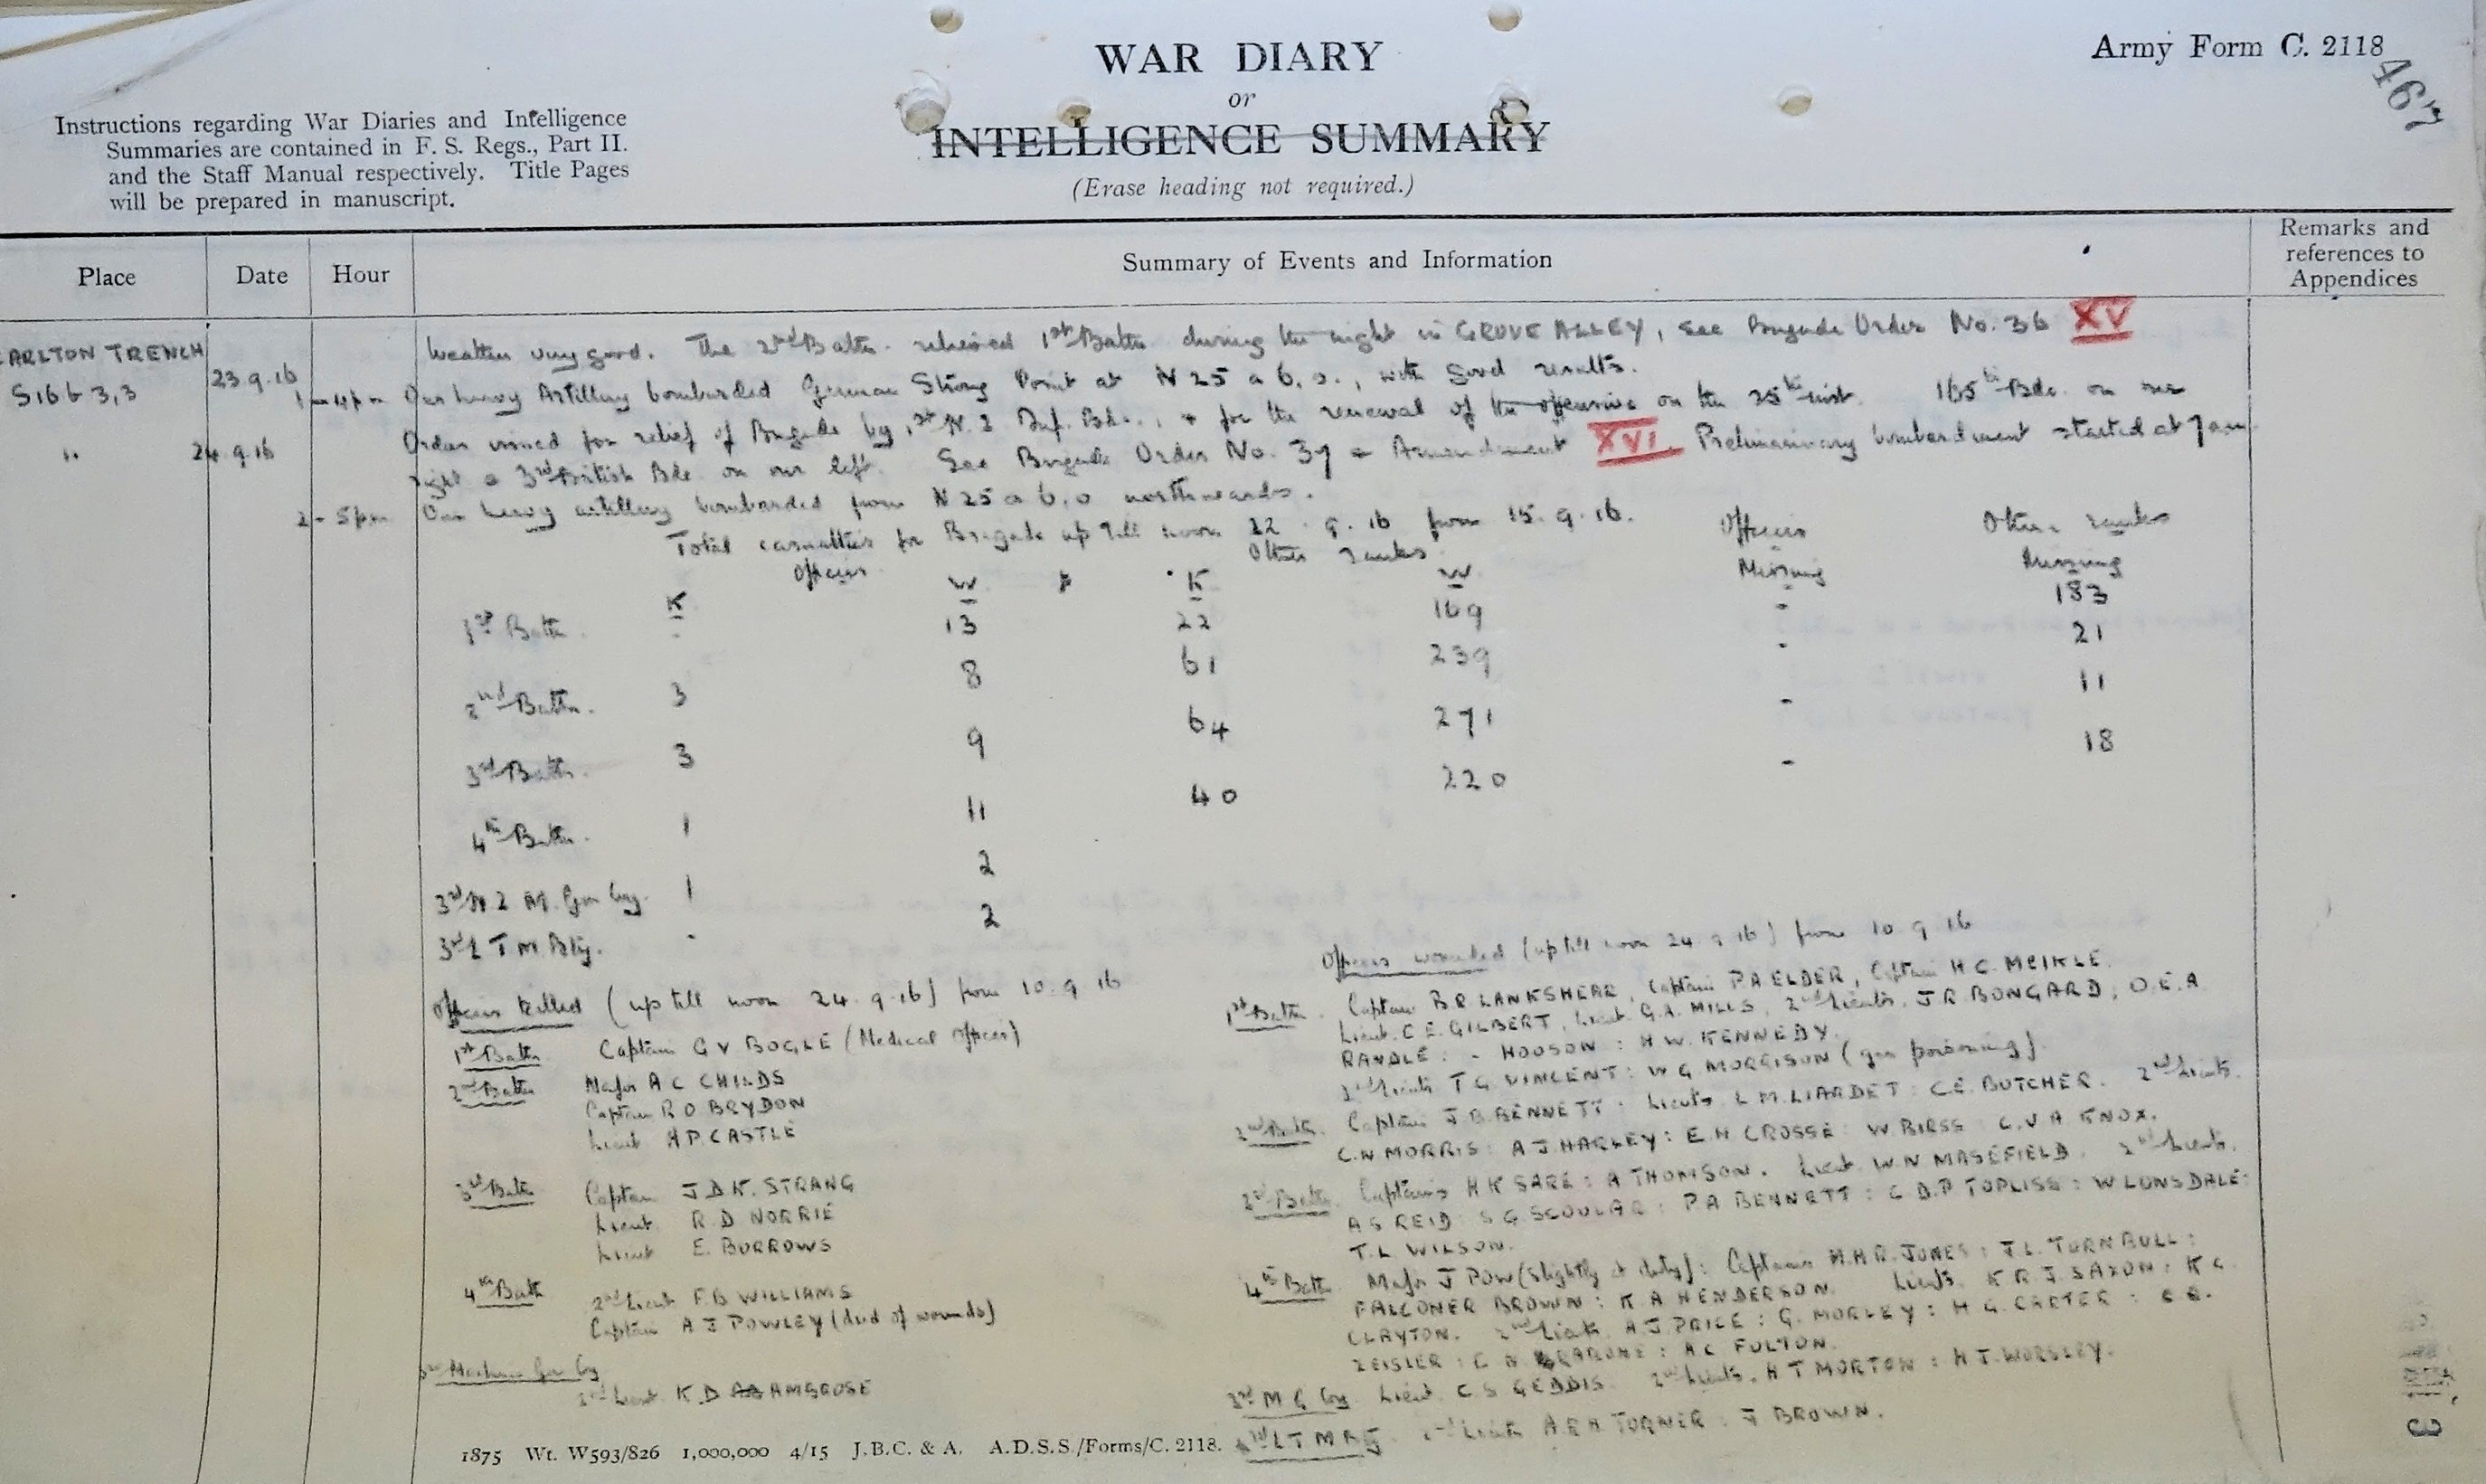 WAR DIARY
or
INTELLIGENCE SUMMARY
(Erase heading not required.)
Army Form C. 2118
467
Instructions regarding War Diaries and Intelligence
Summaries are contained in F. S. Regs., Part II.
and the Staff Manual respectively. Title Pages
will be prepared in manuscript.
Place Date Hour Summary of Events and Information Remarks and references to Appendices
CARLTON TRENCH
S16b 3,3 23.9.16 Weather very good. The 2nd Battn. relieved 1st Battn during the night in GROVE ALLEY, see Brigade Order No. 36 XV
1-4pm Our heavy Artillery bombarded German Strong Point at N 25 a 6.0., with good results.
" 24.9.16 Orders issued for relief of Brigade by 1st N.Z Inf. Bde., + for the renewal of the offensive on the 25th inst. 165th Bde. on our
right & 3rd British Bde. on our left. See Brigade Order No. 37 + Amendment XVI. Preliminary bombardment started at 7am.
2-5pm Our heavy artillery bombarded from N 25 a 6.0 northwards.
Total casualties for Brigade up till noon 22.9.16 from 15.9.16.
Officers Other ranks Officers Missing Other ranks Missing
K W K W
1st Battn. - 13 22 169 - 183
2nd Battn. 3 8 61 239 - 21
3rd Battn. 3 9 64 271 - 11
4th Battn. 1 11 40 220 - 18
3rd N Z M. Gun Coy. 1 2
3rd L T M Bty. - 2
Officers killed (up till noon 24.9.16) from 10.9.16
1st Battn Captain G V BOGLE (Medical Officer)
2nd Battn Major A C CHILDS
Captain R O BRYDON
Lieut H P. CASTLE
3rd Battn Captain J D K. STRANG
Lieut R. D NORRIE
Lieut E. BURROWS
4th Battn 2nd Lieut F. B WILLIAMS
Captain A J POWLEY (died of wounds)
3rd Machine Gun Coy
2nd Lieut K D AMBROSE
Officers wounded (up till noon 24.9.16) from 10.9.16
1st Battn. Captain B R LANKSHEAR, Captain P A ELDER, Captain H C. MEIKLE.
Lieut. C E. GILBERT, Lieut. G. A. MILLS, 2nd Lieuts. J. R BONGARD; O. E. A
RANDLE: - HODSON: H W. KENNEDY.
2nd Lieuts T G VINCENT: W G MORRISON (gas poisoning).
2nd Battn. Captain J. B. BENNETT: Lieuts. L M. LIARDET: C. E. BUTCHER. 2nd Lieuts.
C. N MORRIS: A J HARLEY: E H CROSSE: W. BIRSS: C. V A KNOX.
3rd Battn. Captains H K SARE: A THOMSON. Lieut. W. N MASEFIELD. 2nd Lieuts.
A S REID: S G. SCOULAR: P A BENNETT: C D. P TOPLISS: W LONSDALE:
T. L. WILSON.
4th Battn Major J POW (slightly at duty): Captains H. H R. JONES: J L. TURNBULL:
FALCONER BROWN: K A HENDERSON. Lieuts. K R J. SAXON: K C
CLAYTON. 2nd Lieuts. A. J. PRICE: G. MORLEY: H G. CARTER: C E.
ZEISLER: A C FULTON.
3rd M G Coy Lieut. C S GEDDIS. 2nd Lieuts. H T MORTON: H J. WORSLEY.
3rd L T M Bty 2nd Lieuts A E H TURNER: J BROWN.
1875 Wt. W593/826 1,000,000 4/15 J.B.C. & A. A.D.S.S./Forms/C. 2118.